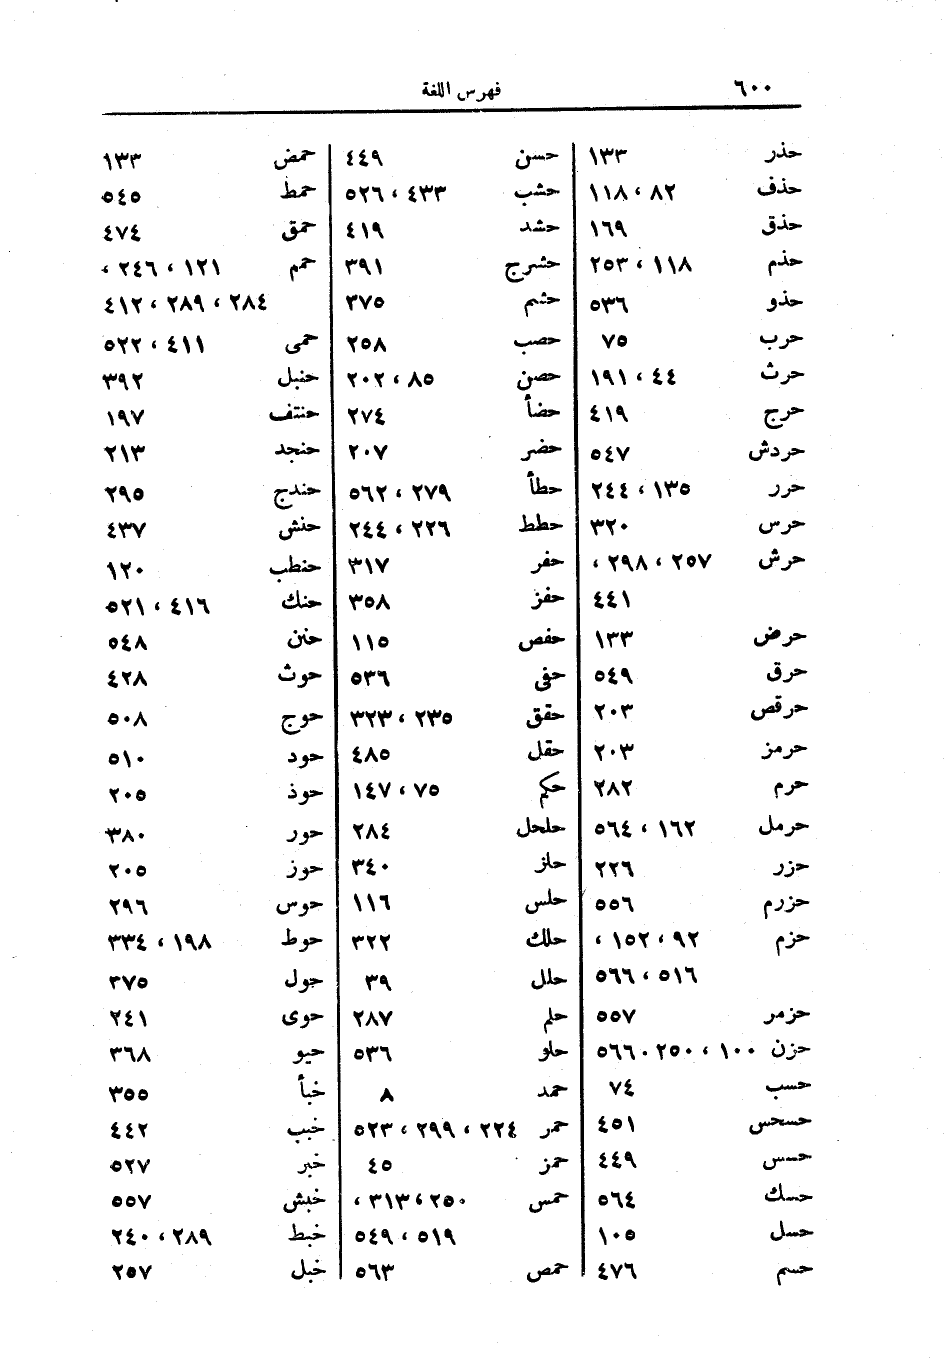 ٦٠٠ فهرس اللغة
حذر ١٣٣
حذف ٨٢ ، ١١٨
حذق ١٦٩
حذم ١١٨ ، ٢٥٣
حذو ٥٣٦
حرب ٧٥
حرث ٤٤ ، ١٩١
حرج ٤١٩
حردش ٥٤٧
حرر ١٣٥ ، ٢٤٤
حرس ٣٢٠
حرش ٢٥٧ ، ٢٩٨ ،
٤٤١
حرض ١٣٣
حرق ٥٤٩
حرقص ٢٠٣
حرمز ٢٠٣
حرم ٢٨٢
حرمل ١٦٢ ، ٥٦٤
حزر ٢٢٦
حزرم ٥٥٦
حزم ٩٢ ، ١٥٢ ،
٥١٦ ، ٥٦٦
حزمر ٥٥٧
حزن ١٠٠ ، ٢٥٠ . ٥٦٦
حسب ٧٤
حسحس ٤٥١
حسس ٤٤٩
حسك ٥٦٤
حسل ١٠٥
حسم ٤٧٦
حسن ٤٤٩
حشب ٤٣٣ ، ٥٢٦
حشد ٤١٩
حشرج ٣٩١
حشم ٣٧٥
حصب ٢٥٨
حصن ٨٥ ، ٢٠٢
حضأ ٢٧٤
حضر ٢٠٧
حطأ ٢٧٩ ، ٥٦٢
حطط ٢٢٦ ، ٢٤٤
حفر ٣١٧
حفز ٣٥٨
حفص ١١٥
حفى ٥٣٦
حقق ٢٣٥ ، ٣٢٣
حقل ٤٨٥
حكم ٧٥ ، ١٤٧
حلحل ٢٨٤
حلز ٣٤٠
حلس ١١٦
حلك ٣٢٢
حلل ٣٩
حلم ٢٨٧
حلو ٥٣٦
حمد ٨
حمر ٢٢٤ ، ٢٩٩ ، ٥٢٣
حمز ٤٥
حمس ٢٥٠ ، ٣١٣ ،
٥١٩ ، ٥٤٩
حمص ٥٦٣
حمض ١٣٣
حمط ٥٤٥
حمق ٤٧٤
حمم ١٢١ ، ٢٤٦ ،
٢٨٤ ، ٢٨٩ ، ٤١٢
حمى ٤١١ ، ٥٢٢
حنبل ٣٩٢
حنتف ١٩٧
حنجد ٢١٣
حندج ٢٩٥
حنش ٤٣٧
حنطب ١٢٠
حنك ٤١٦ ، ٥٢١
حنن ٥٤٨
حوث ٤٢٨
حوج ٥٠٨
حود ٥١٠
حوذ ٢٠٥
حور ٣٨٠
حوز ٢٠٥
حوس ٢٩٦
حوط ١٩٨ ، ٣٣٤
حول ٣٧٥
حوى ٢٤١
حيو ٣٦٨
خبأ ٣٥٥
خبب ٤٤٢
خبر ٥٢٧
خبش ٥٥٧
خبط ٢٨٩ ، ٢٤٠
خبل ٢٥٧